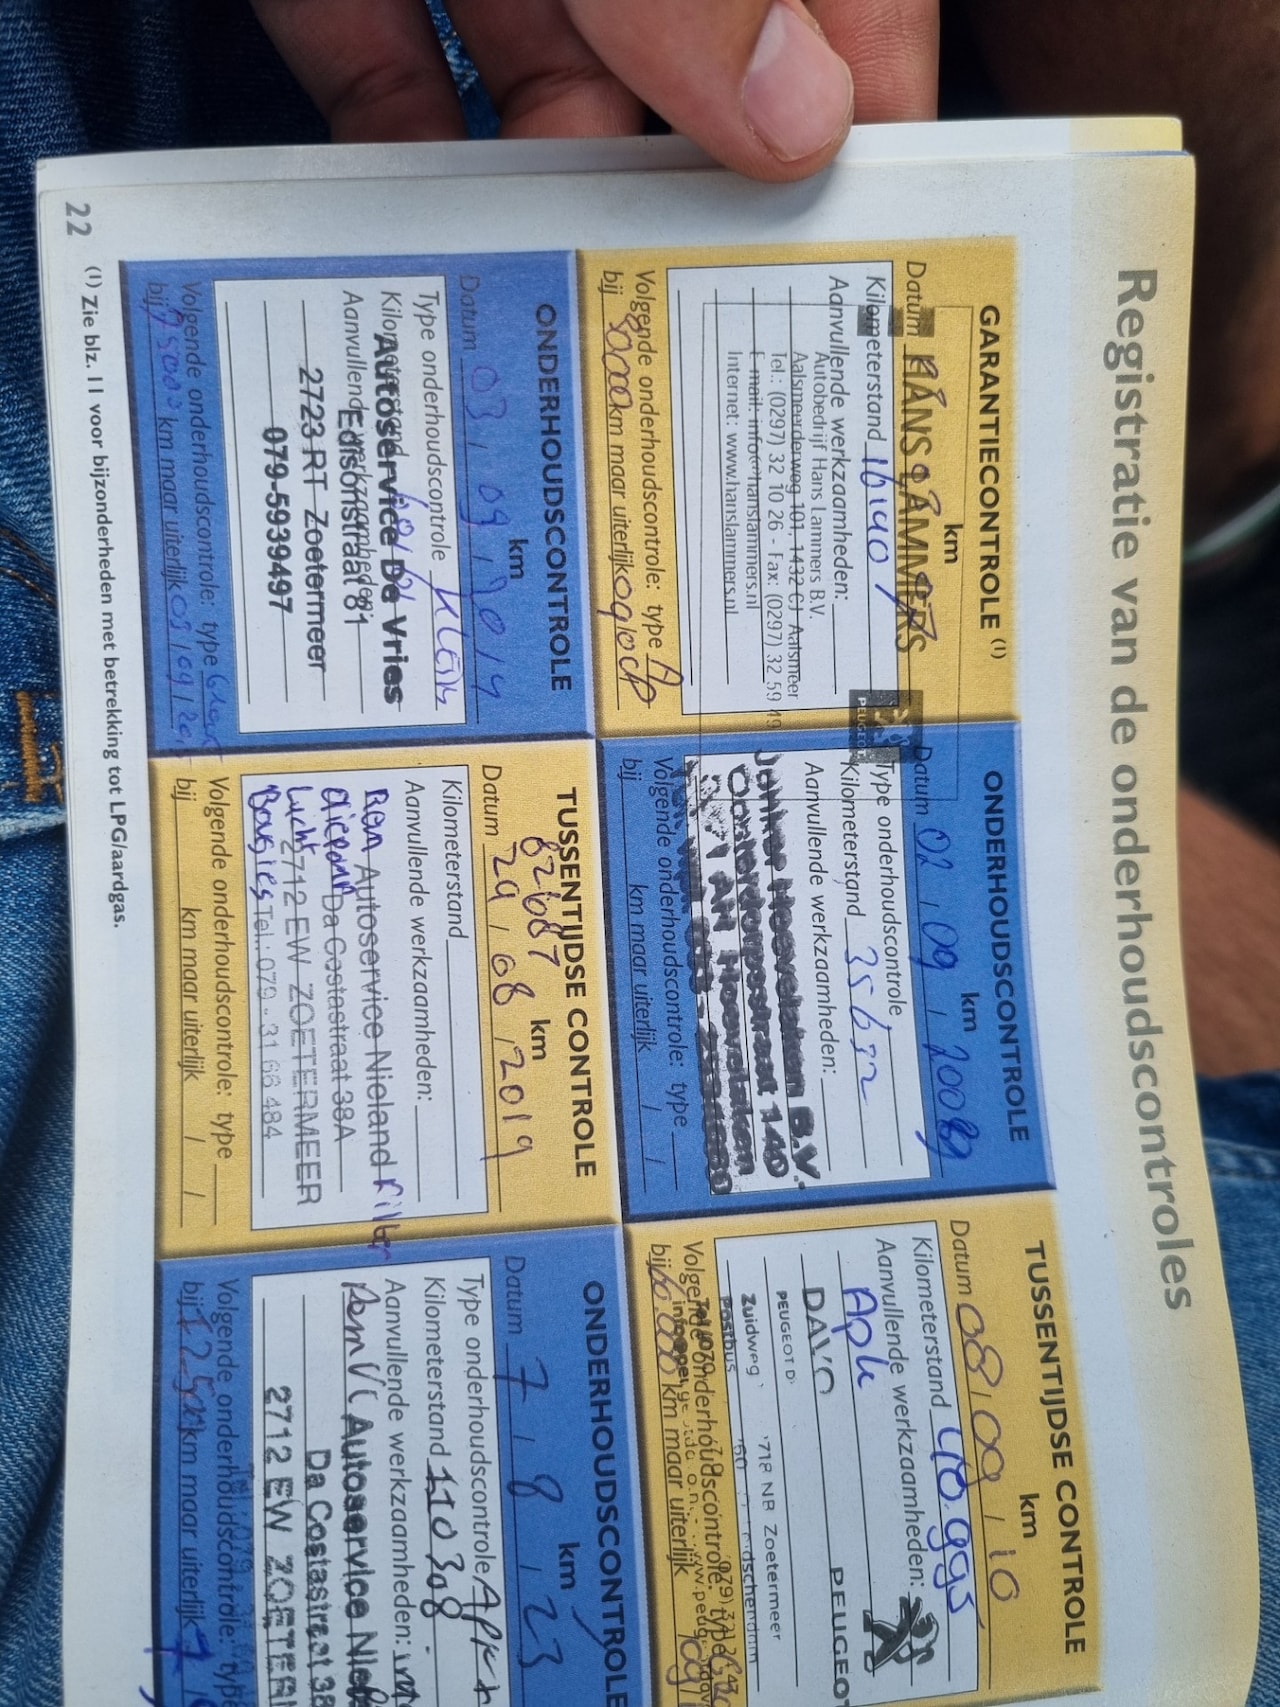 Registratie van de onderhoudscontroles
GARANTIECONTROLE (1)
km
Datum
HANS LAMMERS
Kilometerstand 16140
PEUGEOT
Aanvullende werkzaamheden:
Autobedrijf Hans Lammers B.V.
Aalsmeerderweg 101, 1432 CJ Aalsmeer
Tel.: (0297) 32 10 26 - Fax: (0297) 32 59 49
E-mail: info@hanslammers.nl
Internet: www.hanslammers.nl
Volgende onderhoudscontrole: type
bij km maar uiterlijk
ONDERHOUDSCONTROLE
km
Datum 02 / 09 /
Type onderhoudscontrole
Kilometerstand 35632
Aanvullende werkzaamheden:
Jonker Hoevelaken B.V.
Oosterdorpsstraat 140
AH Hoevelaken
Volgende onderhoudscontrole: type
bij km maar uiterlijk / /
TUSSENTIJDSE CONTROLE
km
Datum 08 / 09 / 10
Kilometerstand 40.995
Aanvullende werkzaamheden:
Apk
DAVO PEUGEOT
PEUGEOT D
Zuidweg NB Zoetermeer
Postbus
Volgende onderhoudscontrole: type
bij 60.000 km maar uiterlijk
ONDERHOUDSCONTROLE
km
Datum 03 / 09 / 2014
Type onderhoudscontrole Klein
Kilometerstand
Autoservice De Vries
Aanvullende werkzaamheden:
Edisonstraat 81
2723 RT Zoetermeer
079-5939497
Volgende onderhoudscontrole: type
bij 75000 km maar uiterlijk 03 / 09 /
TUSSENTIJDSE CONTROLE
82687 km
Datum 29 / 08 / 2019
Kilometerstand
Aanvullende werkzaamheden:
Autoservice Nieland filter
Da Costastraat 38A
Lucht 2712 EW ZOETERMEER
Bougies Tel.: 079 - 31 66 484
Volgende onderhoudscontrole: type
bij km maar uiterlijk / /
ONDERHOUDSCONTROLE
km
Datum 7 / 8 / 23
Type onderhoudscontrole
Kilometerstand 110308
Aanvullende werkzaamheden:
Autoservice
Da Costastraat 38
2712 EW
Volgende onderhoudscontrole: type
bij 125000 km maar uiterlijk
(1) Zie blz. 11 voor bijzonderheden met betrekking tot LPG/aardgas.
22